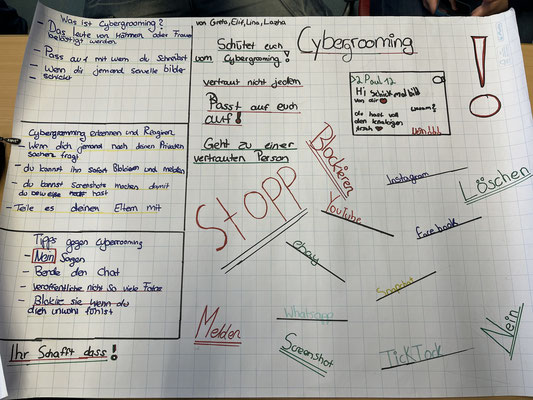 Was ist Cybergrooming?
- Das leute von Männen oder Frauen
belästigt werden
- Pass auf mit wem du Schreibst
- Wenn dir jemand sexuelle bilder
- schickt
Cybergrooming erkennen und Reagiren
- Wenn dich jemand nach deinen Privaten
Sachen fragt
- du kannst ihn sofort Blokieren und melden
- du kannst Screnshots machen damit
du beweise hast
- Teile es deinen Eltern mit
Tipps gegen cybergrooming
- Nein Sagen
- Bende den Chat
- veröffentliche nicht so viele Fotos
- Blokiere sie wenn du
dich unwohl fühlst
Ihr Schafft dass!
von Greta, Elif, Lina,
Schützt euch
vom Cybergrooming!
vertraut nicht jeden
Passt auf euch
auf!
Geht zu einer
vertrauten Person
Cybergrooming
Paul 12
Hi Schick mal bild
von dir
Warum?
du hast voll
!
STOPP
Blockieren
YouTube
Instagram
Löschen
facebook
ebay
Snapchat
Melden
Whatsapp
Screenshot
TickTock
Nein